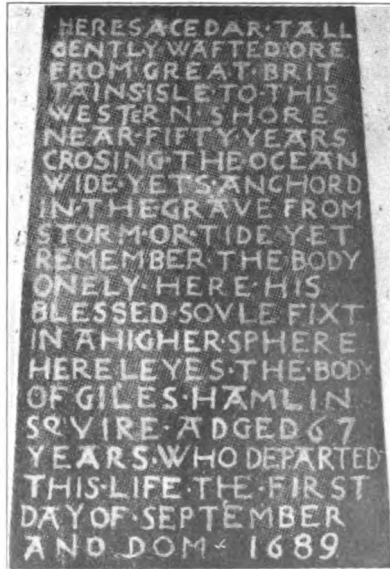 HERES A CEDAR·TALL
GENTLY WAFTED ORE
FROM GREAT·BRIT
TAINS ISLE·TO·THIS
WESTERN·SHORE
NEAR·FIFTY·YEARS
CROSING·THE OCEAN
WIDE·YETS·ANCHORD
IN·THE GRAVE FROM
STORM·OR·TIDE YET
REMEMBER·THE BODY
ONELY·HERE·HIS
BLESSED·SOVLE FIXT
IN A HIGHER·SPHERE
HERE LEYES·THE·BODY
OF GILES·HAMLIN
SQVIRE·ADGED 67
YEARS·WHO DEPARTED
THIS·LIFE·THE·FIRST
DAY OF·SEPTEMBER
AND DOM 1689